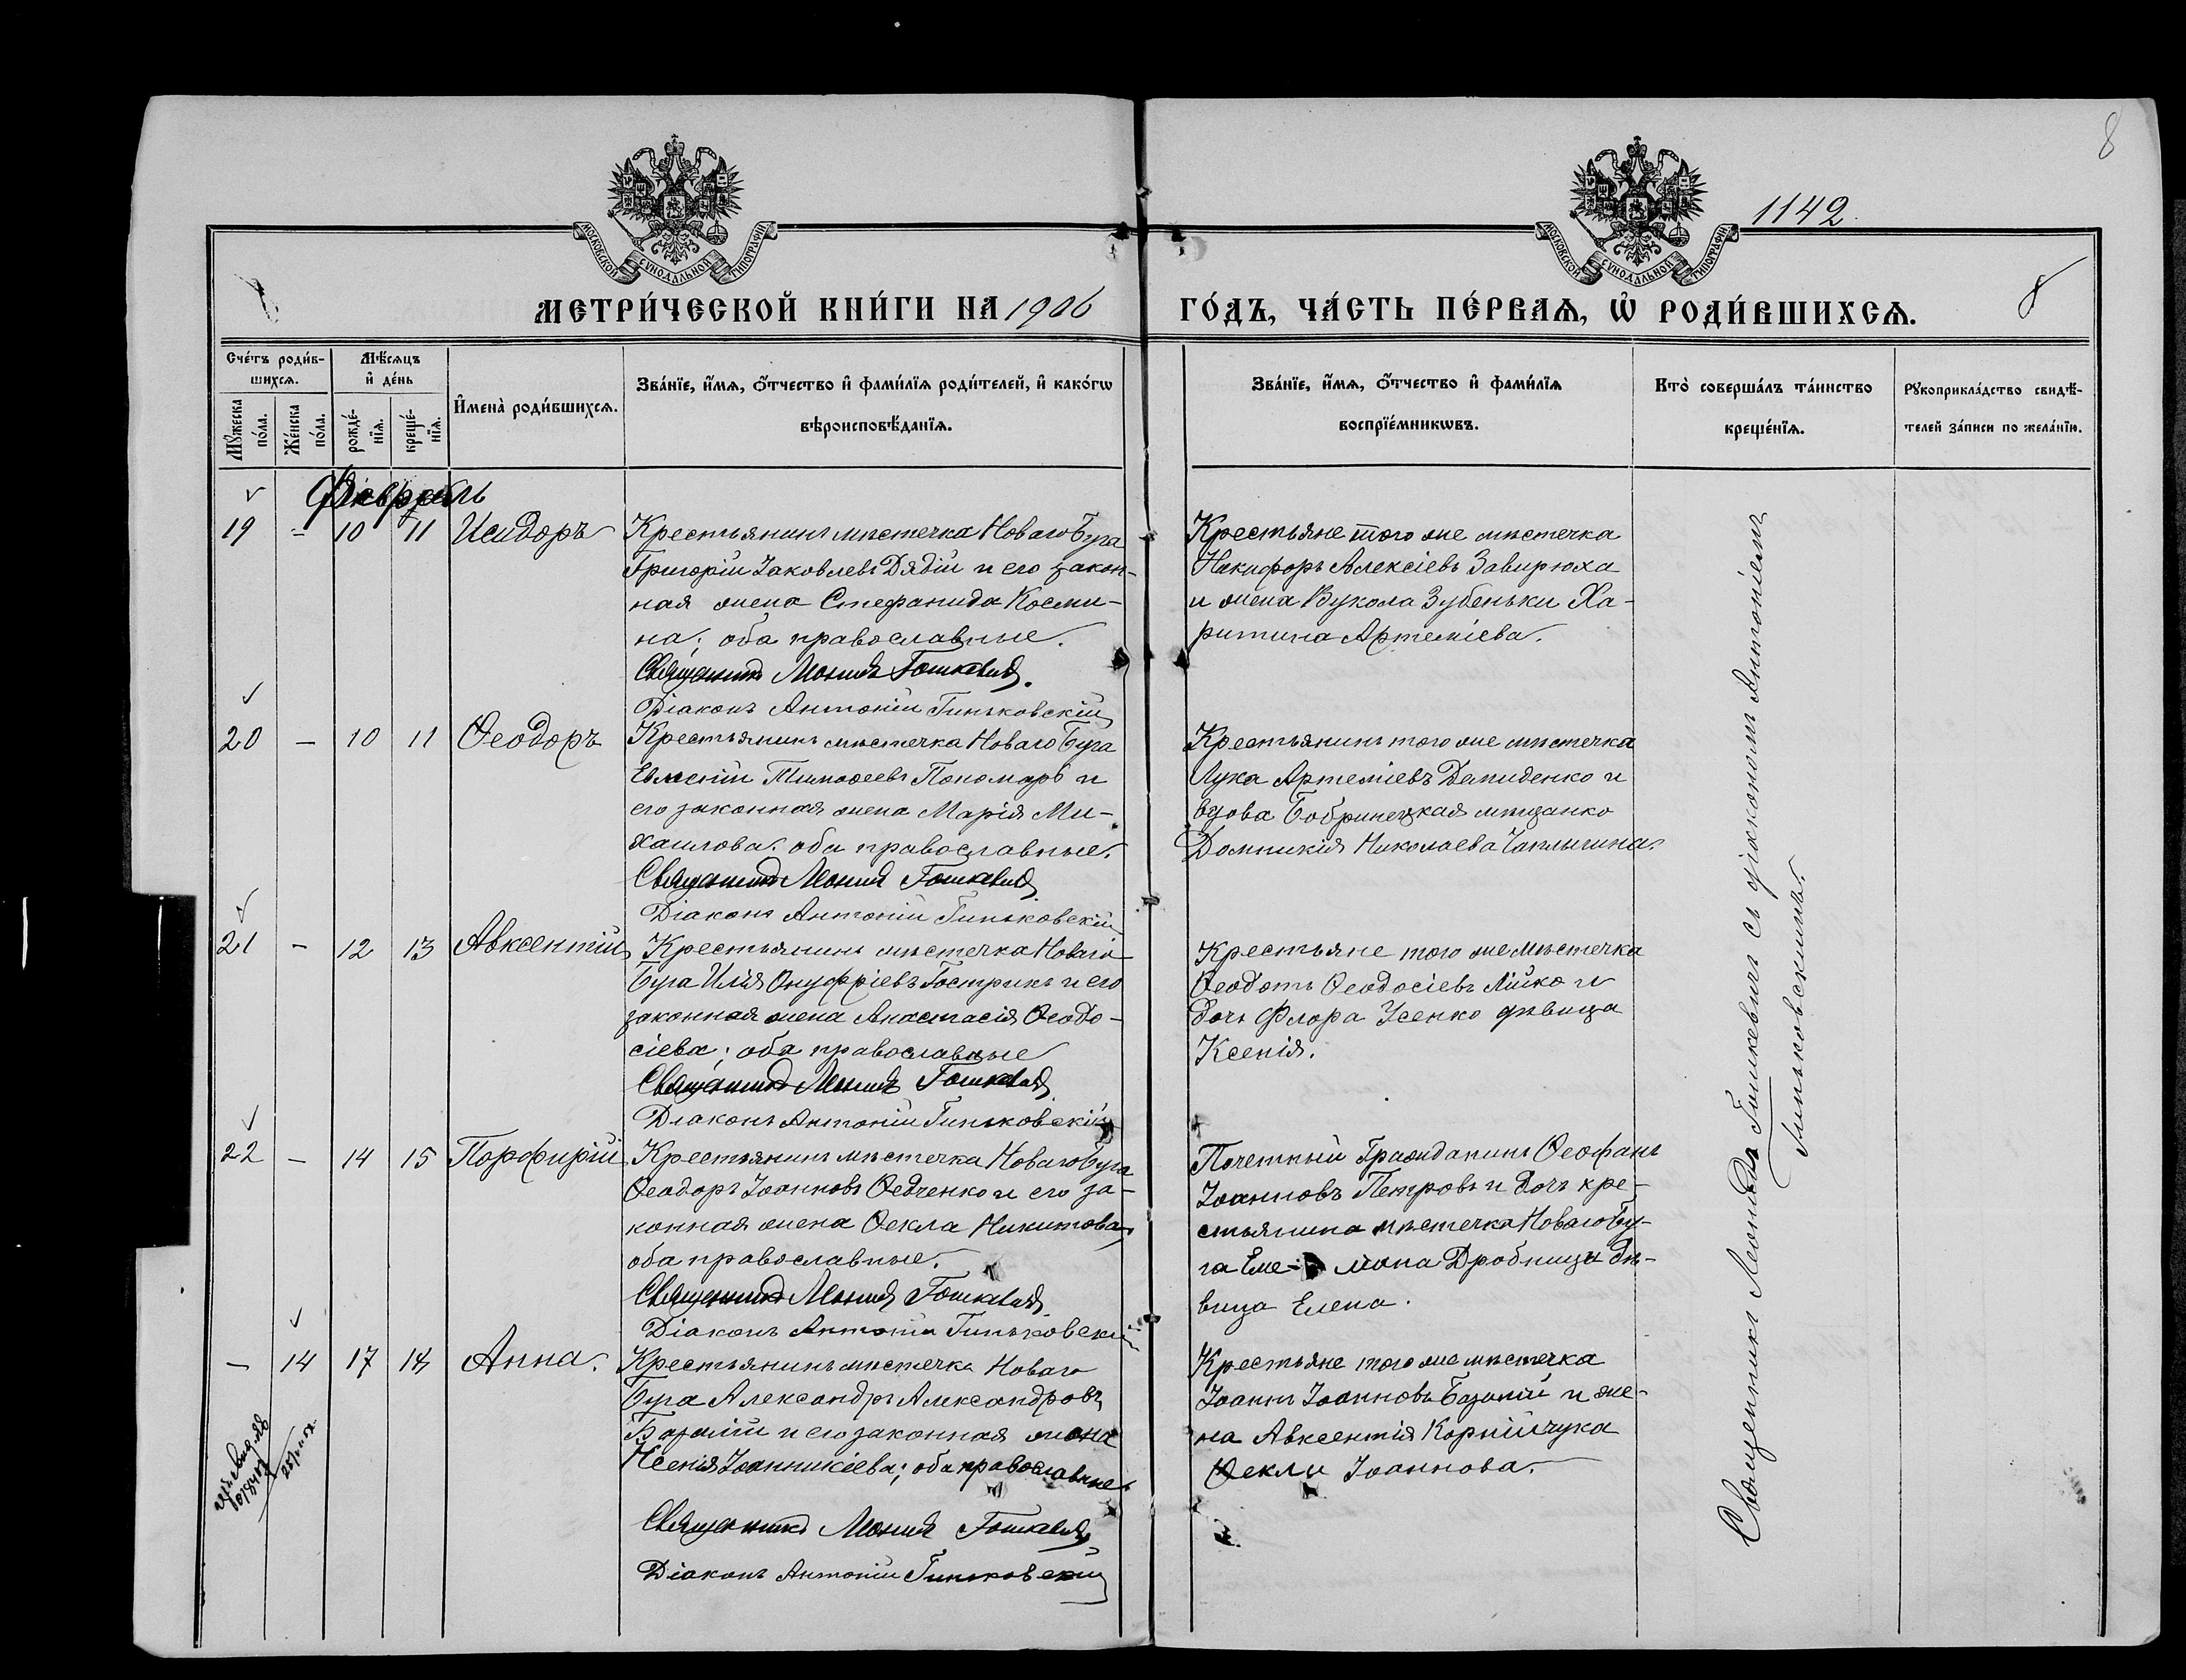 8
1142
МОСКОВСКОЙ СѴНОДАЛЬНОЙ ТИПОГРАФІИ
МОСКОВСКОЙ СѴНОДАЛЬНОЙ ТИПОГРАФІИ
МЕТРИ́ЧЕСКОЙ КНИ́ГИ НА 1906 ГО́ДЪ, ЧА́СТЬ ПЕ́РВАѦ, Ѡ҆ РОДИ́ВШИХСѦ. 8
Сче́тъ роди́в-
шихсѧ.
Мꙋ́жеска по́ла.
Же́нска по́ла.
Мѣ́сѧцъ
и҆ де́нь
рожде́-
нїѧ.
креще́-
нїѧ.
И҆мена̀ роди́вшихсѧ.
Зва́нїе, и҆́мѧ, ѻ҆́тчество и҆ фами́лїѧ роди́телей, и҆ како́гѡ
вѣроисповѣ́данїѧ.
Зва́нїе, и҆́мѧ, ѻ҆́тчество и҆ фами́лїѧ
воспрїе́мникѡвъ.
Кто̀ соверша́лъ та́инство
креще́нїѧ.
Рꙋкоприкла́дство свидѣ́-
телей за́писи по жела́нїю.
Февраль
19 - 10 11 Исидоръ
Крестьянинъ мѣстечка Новаго Буга
Григорій Іаковлевъ Дядій и его закон-
ная жена Стефанида Косми-
на; оба православные.
Священникъ Леонидъ Гошкевичъ.
Діаконъ Антоній Гиньковскій
Крестьяне того же мѣстечка
Никифоръ Алексіевъ Завирюха
и жена Вукола Зубеньки Ха-
ритина Артеміева.
20 - 10 11 Ѳеодоръ
Крестьянинъ мѣстечка Новаго Буга
Евгеній Тимоѳеевъ Пономарь и
его законная жена Марія Ми-
хаилова. оба православные.
Священникъ Леонидъ Гошкевичъ
Діаконъ Антоній Гиньковскій
Крестьянинъ того же мѣстечка
Лука Артеміевъ Демиденко и
вдова Бобринецкая мѣщанка
Домникія Николаева Чаплыгина.
21 - 12 13 Авксентій
Крестьянинъ мѣстечка Новаго
Буга Илія Онуфріевъ Гострикъ и его
законная жена Анастасія Ѳеодо-
сіева; оба православные
Священникъ Леонидъ Гошкевичъ
Діаконъ Антоній Гиньковскій
Крестьяне того же мѣстечка
Ѳеодотъ Ѳеодосіевъ Лійко и
дочь Флора Усенко дѣвица
Ксенія.
22 - 14 15 Порфирій
Крестьянинъ мѣстечка Новаго Буга
Ѳеодоръ Іоанновъ Ѳедченко и его за-
конная жена Ѳекла Никитова,
оба православные.
Священникъ Леонидъ Гошкевичъ
Діаконъ Антоній Гиньковскій
Почетный Гражданинъ Ѳеофанъ
Іоанновъ Петровъ и дочь кре-
стьянина мѣстечка Новаго Бу-
га Еме- ліана Дробницы дѣ-
вица Елена.
- 14 17 18 Анна.
Крестьянинъ мѣстечка Новаго
Буга Александръ Александровъ
Базалій и его законная жена
Ксенія Іоанникіева; оба православные
Священникъ Леонидъ Гошкевичъ
Діаконъ Антоній Гиньковскій
Крестьяне того же мѣстечка
Іоаннъ Іоанновъ Базалій и же-
на Авксентія Корнійчука
Ѳекла Іоаннова.
Священникъ Леонидъ Гошкевичъ съ діакономъ Антоніемъ
Гиньковскимъ.